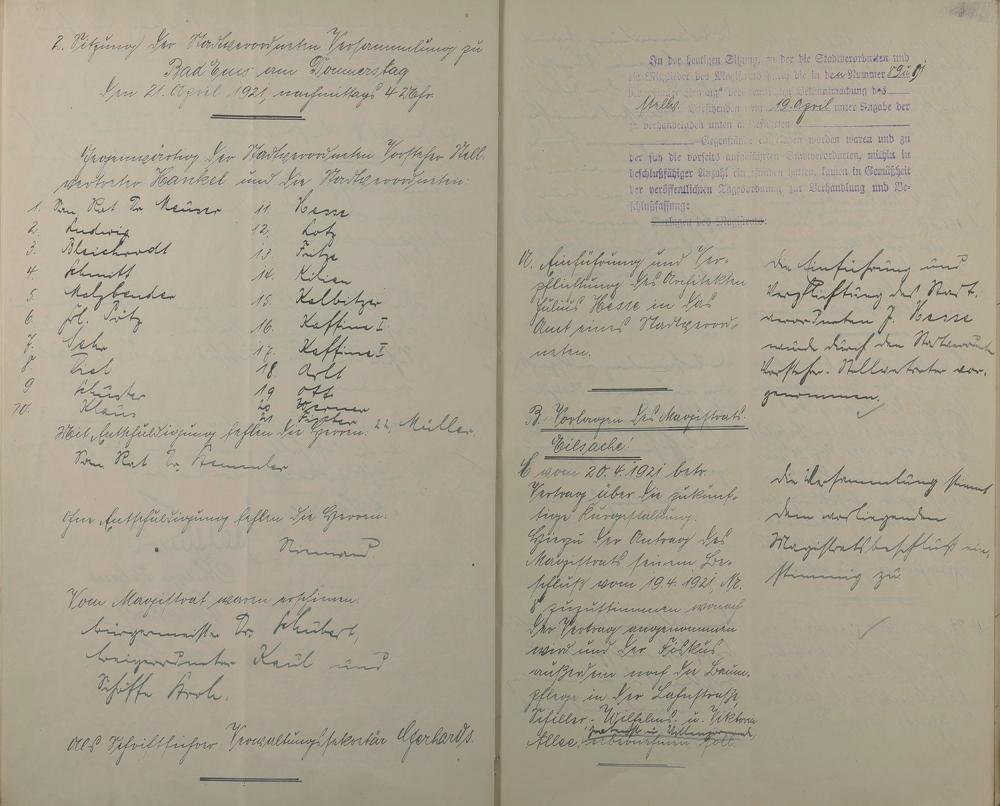 2. Sitzung der Stadtverordneten Versammlung zu
Bad Ems am Donnerstag
den 21. April 1921, nachmittags 4 Uhr.
Gegenwärtig der Stadtverordneten Vorsteher Stell.
vertreter Hankel und die Stadtverordneten:
1. San. Rat Dr. Meuser
2. Ludwig
3. Bleichrodt
4. Schmitt
5. Malzbender
6. Frl. Pütz
7. Sehr
8 Diel
9 Schuster
10. Klaus
11. Hesse
12. Lotz
13. Fritze
14. Kilian
15. Kalbitzer
16. Kaffine I
17. Kaffine I
18 Arlt
19 Ott
20 Werner
21 Fischer
22, Müller.
Mit Entschuldigung fehlen die Herren:
San Rat Dr. Stemmler
Ohne Entschuldigung fehlen die Herren:
Niemand.
Vom Magistrat waren erschienen:
Bürgermeister Dr. Schubert,
Beigeordneter Kaul und
Schöffe
Als Schriftführer Verwaltungssekretär Gerhards.
In der heutigen Sitzung, zu der die Stadtverordneten und
die Mitglieder des Magistrats durch die in den Nummer
Bekanntmachung des
Stellv. Vorsitzenden vom 19. April unter Angabe der
zu verhandelnden
Gegenstände eingeladen worden waren und zu
der sich die vorseits aufgeführten Stadtverordneten, mithin in
beschlußfähiger Anzahl eingefunden hatten, kamen in Gemäßheit
der veröffentlichten Tagesordnung zur Verhandlung und Be-
schlußfassung:
Vorlagen des Magistrats:
A. Einführung und Ver-
pflichtung des Architekten
Julius Hesse in das
Amt eines Stadtverord-
neten.
Die Einführung und
Verpflichtung des Stadt.
verordneten J. Hesse
wurde durch den Stadtverordn.
Vorsteher. Stellvertreter vor.
genommen.
B. Vorlagen des Magistrats.
Eilsache!
vom 20.4.1921 betr.
Vertrag über die zukünf-
tige Kurgestaltung.
Hierzu der Antrag des
Magistrats seinem Be-
schluß vom 19.4.1921, Nr.
8 zuzustimmen wonach
der Vertrag angenommen
wird und der Fiskus
außerdem noch die Baum.
pflege in der Lahnstraße,
Schiller- Wilhelms- u. Viktoria
Allee, übernehmen soll.
Die Versammlung stimmt
dem vorliegenden
Magistratsbeschluß ein.
stimmig zu